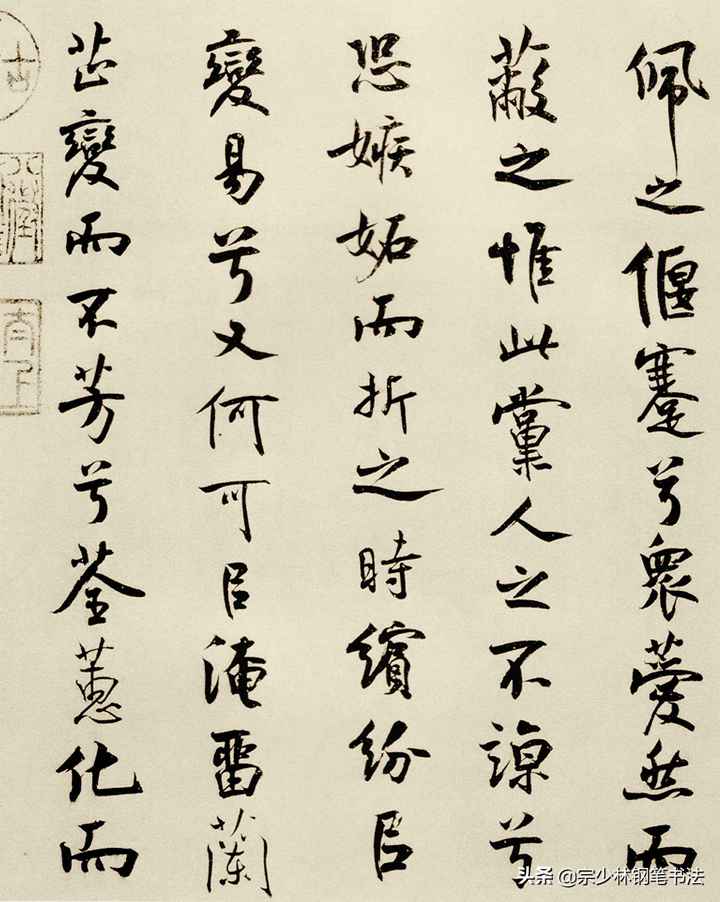 佩之偃蹇兮衆薆然而
蔽之惟此黨人之不諒兮
恐嫉妬而折之時繽紛㠯
變易兮又何可㠯淹畱蘭
芷變而不芳兮荃蕙化而
古
头条 @宗少林钢笔书法